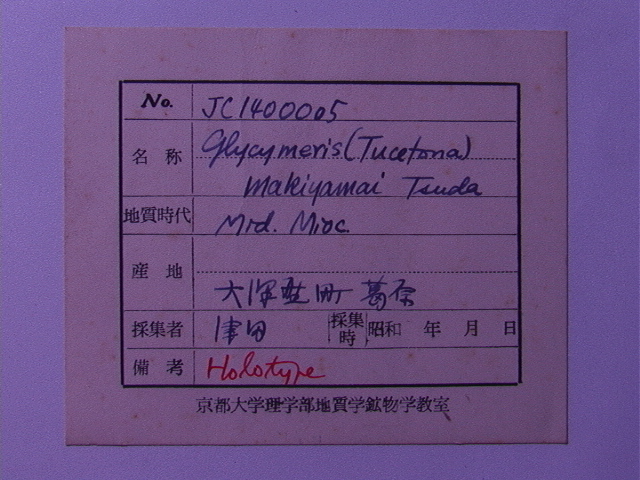 No. JC1400005
名称 Glycymeris (Tucetona)
makiyamai Tsuda
地質時代 Mid. Mioc.
産地
大沢野町 葛原
採集者 津田 採集時 昭和 年 月 日
備考 Holotype
京都大学理学部地質学鉱物学教室